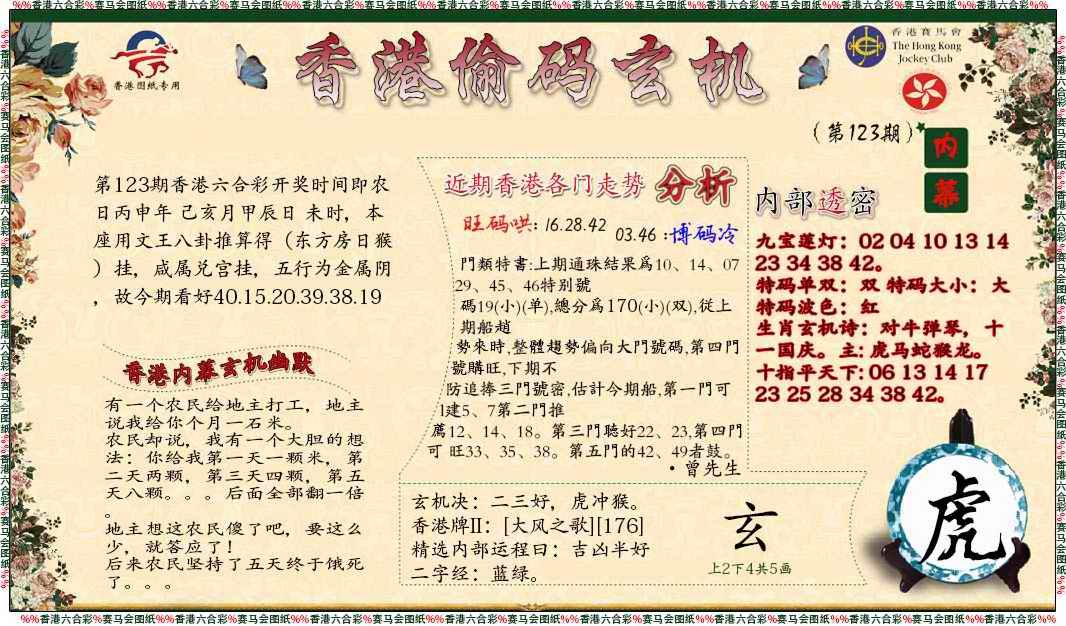 %%香港六合彩%赛马会图纸%%香港六合彩%赛马会图纸%%香港六合彩%赛马会图纸%%香港六合彩%赛马会图纸%%香港六合彩%赛马会图纸%%香港六合彩%赛马会图纸%%香港六合彩%%
香港图纸专用
香港偷码玄机
香港賽馬會
The Hong Kong
Jockey Club
(第123期)
内
幕
第123期香港六合彩开奖时间即农
日丙申年 己亥月甲辰日 未时，本
座用文王八卦推算得（东方房日猴
）挂，咸属兑宫挂，五行为金属阴
，故今期看好40.15.20.39.38.19
香港内幕玄机幽默
有一个农民给地主打工，地主
说我给你个月一石米。
农民却说，我有一个大胆的想
法：你给我第一天一颗米，第
二天两颗，第三天四颗，第五
天八颗。。。后面全部翻一倍
。
地主想这农民傻了吧，要这么
少，就答应了！
后来农民坚持了五天终于饿死
了。。。
近期香港各门走势 分析
旺码哄: 16.28.42
03.46 :博码冷
門類特書:上期通珠結果爲10、14、07
29、45、46特别號
碼19(小)(单),總分爲170(小)(双),從上
期船趟
勢來時,整體趨勢偏向大門號碼,第四門
號購旺,下期不
防追捧三門號密,估計今期船,第一門可
1建5、7第二門推
薦12、14、18。第三門聴好22、23,第四門
可 旺33、35、38。第五門的42、49者鼓。
·曾先生
内部透密
九宝莲灯：02 04 10 13 14
23 34 38 42。
特码单双：双 特码大小：大
特码波色：红
生肖玄机诗：对牛弹琴，十
一国庆。主: 虎马蛇猴龙。
十指平天下: 06 13 14 17
23 25 28 34 38 42。
玄机决：二三好，虎冲猴。
香港牌II：[大风之歌][176]
精选内部运程曰：吉凶半好
二字经：蓝绿。
玄
上2下4共5画
虎
%%香港六合彩%赛马会图纸%%香港六合彩%赛马会图纸%%香港六合彩%赛马会图纸%%香港六合彩%赛马会图纸%%香港六合彩%赛马会图纸%%香港六合彩%赛马会图纸%%香港六合彩%%